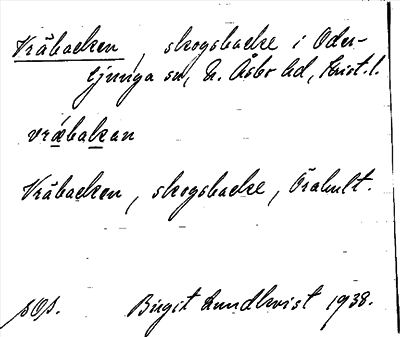 Vråbacken, skogsbacke i Oder-
ljunga sn, N. Åsbo hd, Krist. l.
vræbakan
Vråbacken, skogsbacke, Örahult.
Birgit Lundkvist 1938.